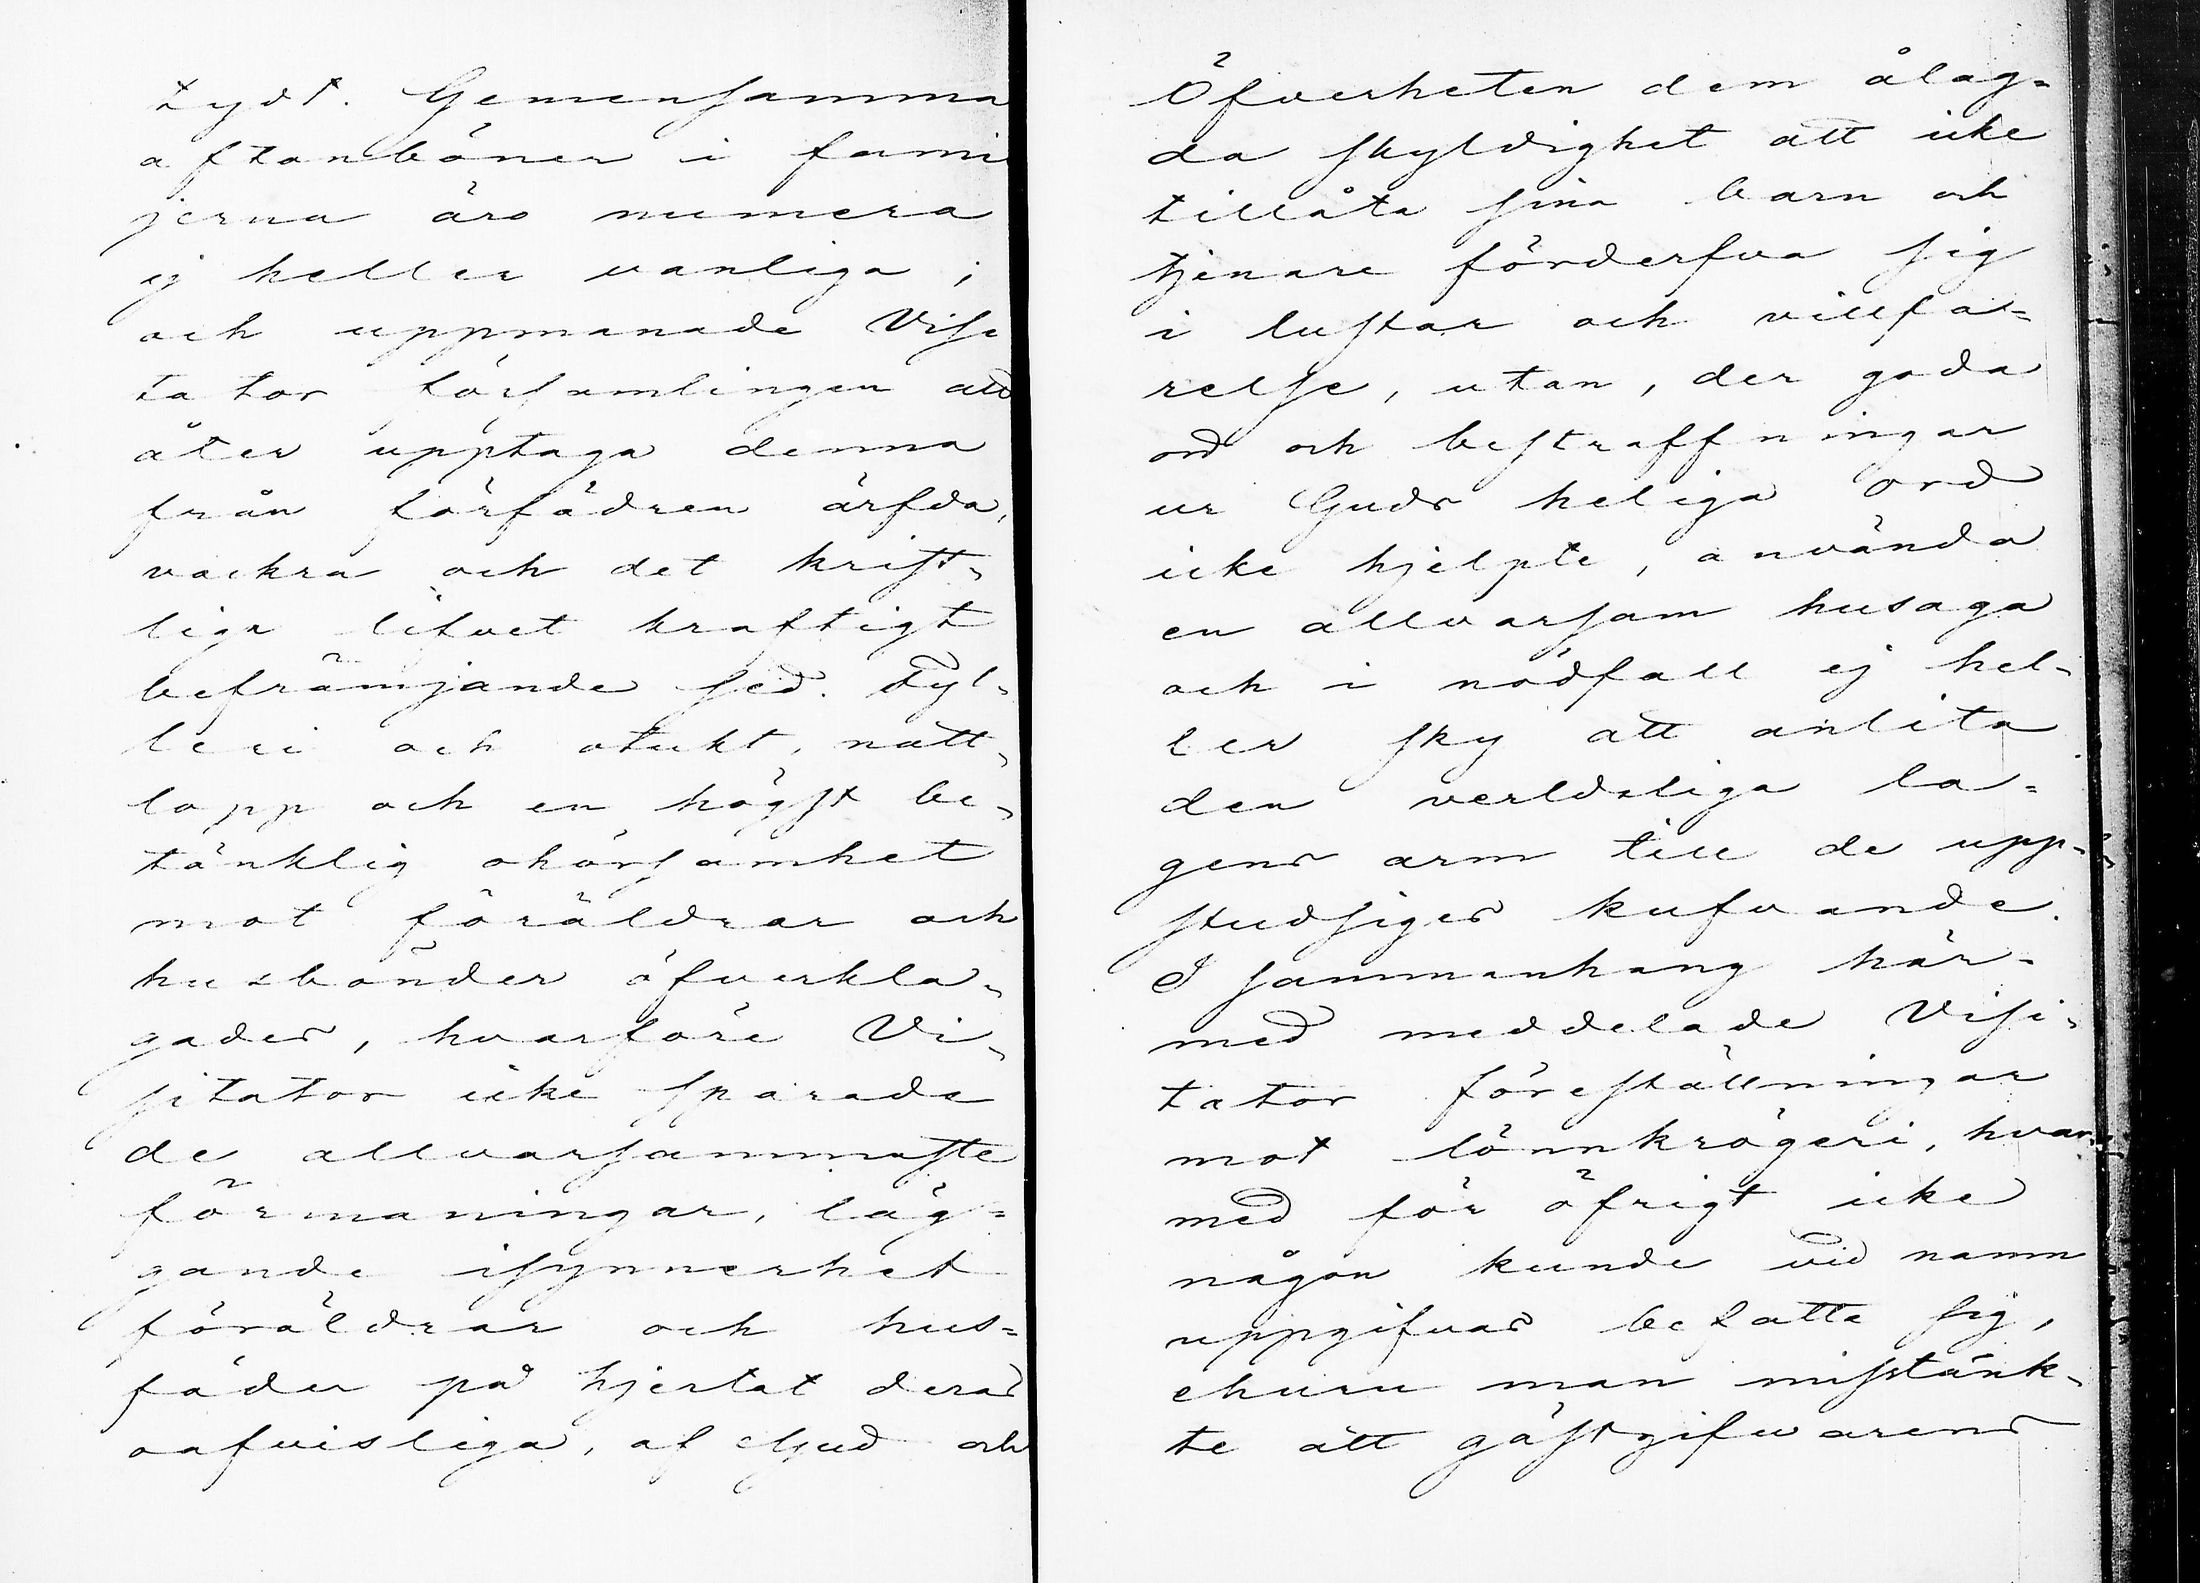 tydt. Gemensamma
aftonböner i fami
jerna äro numera
ej heller vanliga;
och uppmanade Visi
tator församlingen att
åter upptaga denna
från förfädren ärfda,
vackra och det krist-
liga lifvet kraftigt
befrämjande sed. Fyl-
leri och otukt, natt-
lopp och en högst be-
tänklig ohörsamhet
mot föräldrar och
husbönder öfverkla-
gades, hvarföre Vi-
sitator icke sparade
de allvarsammaste
förmaningar, läg-
gande isynnerhet
föräldrar och hus-
fäder på hjertat deras
oafvisliga, af Gud och
Öfverheten dem ålag-
da skyldighet att icke
tillåta sina barn och
tjenare förderfva sig
i lustar och villfa-
relse, utan, der goda
ord och bestraffningar
ur Guds heliga ord
icke hjelpte, använda
en allvarsam husaga
och i nödfall ej hel-
ler sky att anlita
den verldsliga la-
gens arm till de upp-
studsiges kufvande.
I sammanhang här-
med meddelade Visi-
tator föreställningar
mot lönnkrögeri, hvar-
med för öfrigt icke
någon kunde vid namn
uppgifvas befatta sig,
ehuru man misstänk-
te att gästgifvarens